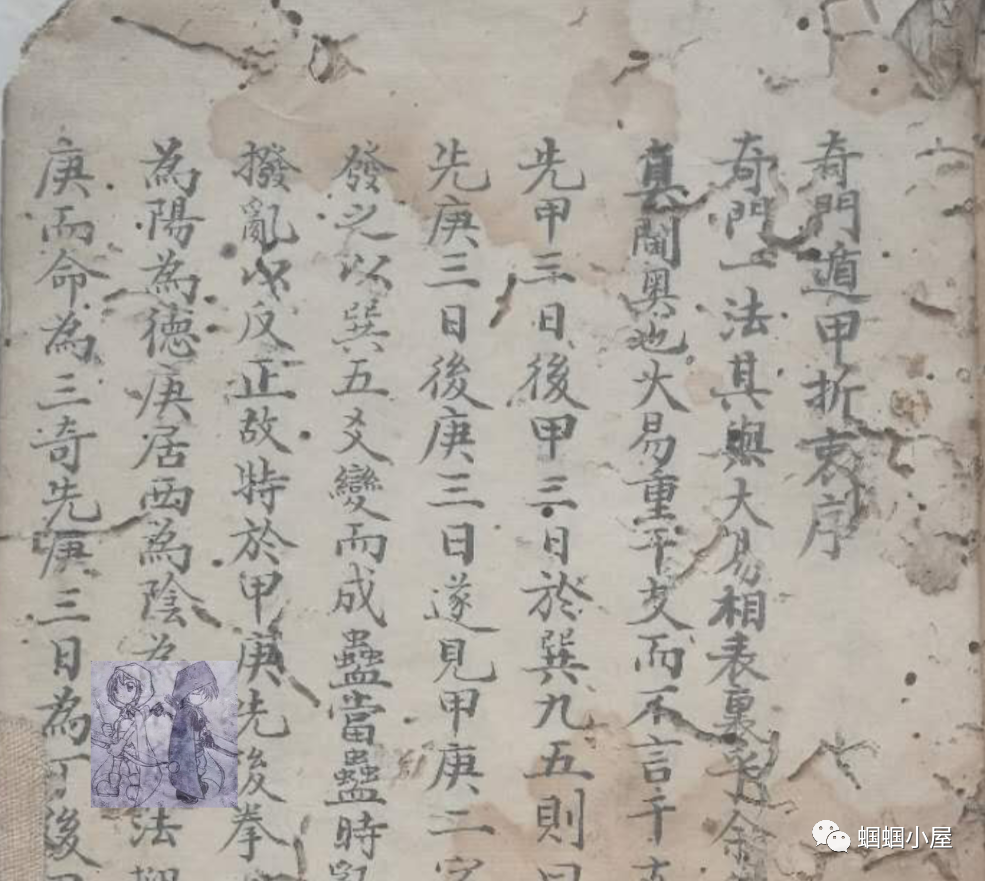 奇門遁甲折衷序
奇門一法其與大易相表裏乎余
真閫奥也大易重干支而不言干支
先甲三日後甲三日於巽九五則曰
先庚三日後庚三日遂見甲庚二字
發之以巽五爻變而成蠱當蠱時亂
撥亂以反正故特於甲庚先後拳
為陽為德庚居西為陰為 法
庚而命為三奇先庚三日為丁後
蝈蝈小屋